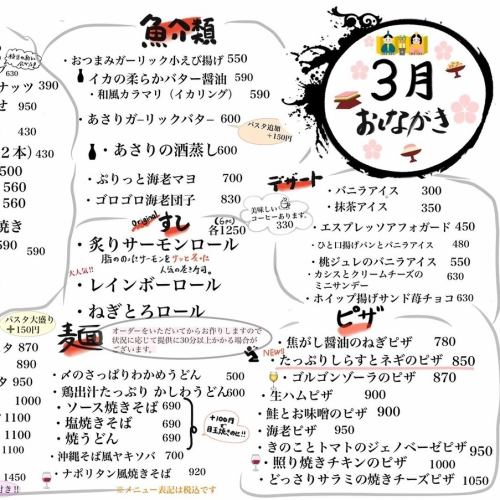 630
ナッツ 390
せ 950
390
2本) 430
500
560
560
焼き
590
パスタ大盛り
+150円
タ 870
890
タ 950
1000
1100
1100
1450
付き!!
魚介類
・おつまみガーリック小えび揚げ 550
・イカの柔らかバター醤油 590
・和風カラマリ(イカリング) 590
・あさりガーリックバター 600
パスタ追加
+150円
・あさりの酒蒸し 600
・ぷりっと海老マヨ 700
・ゴロゴロ海老団子 830
original
すし
(6pc)
各1250
・炙りサーモンロール
脂ののったサーモンをサッと炙った
人気の巻き寿司。
大人気!!
・レインボーロール
・ねぎとろロール
麺
オーダーをいただいてからお作りしますので
状況に応じて提供に30分以上かかる場合が
ございます。
・〆のさっぱりわかめうどん 500
・鶏出汁たっぷり かしわうどん 600
・ソース焼きそば 690
・塩焼きそば 690
・焼うどん 690
+100円
目玉焼きのせ!!
・沖縄そば風ヤキソバ 700
・ナポリタン風焼きそば 920
※メニュー表記は税込です
3月
おしながき
デザート
美味しい
コーヒーあります。
330
・バニラアイス 300
・抹茶アイス 350
・エスプレッソアフォガード 450
・ひと口揚げパンとバニラアイス 480
・桃ジュレのバニラアイス 550
・カシスとクリームチーズの
ミニサンデー 630
・ホイップ揚げサンド苺チョコ 630
ピザ
・焦がし醤油のねぎピザ 780
NEW!!
・たっぷりしらすとネギのピザ 850
・ゴルゴンゾーラのピザ 870
・生ハムピザ 900
・鮭とお味噌のピザ 900
・海老ピザ 950
・きのことトマトのジェノベーゼピザ 950
・照り焼きチキンのピザ 1000
・どっさりサラミの焼きチーズピザ 1050